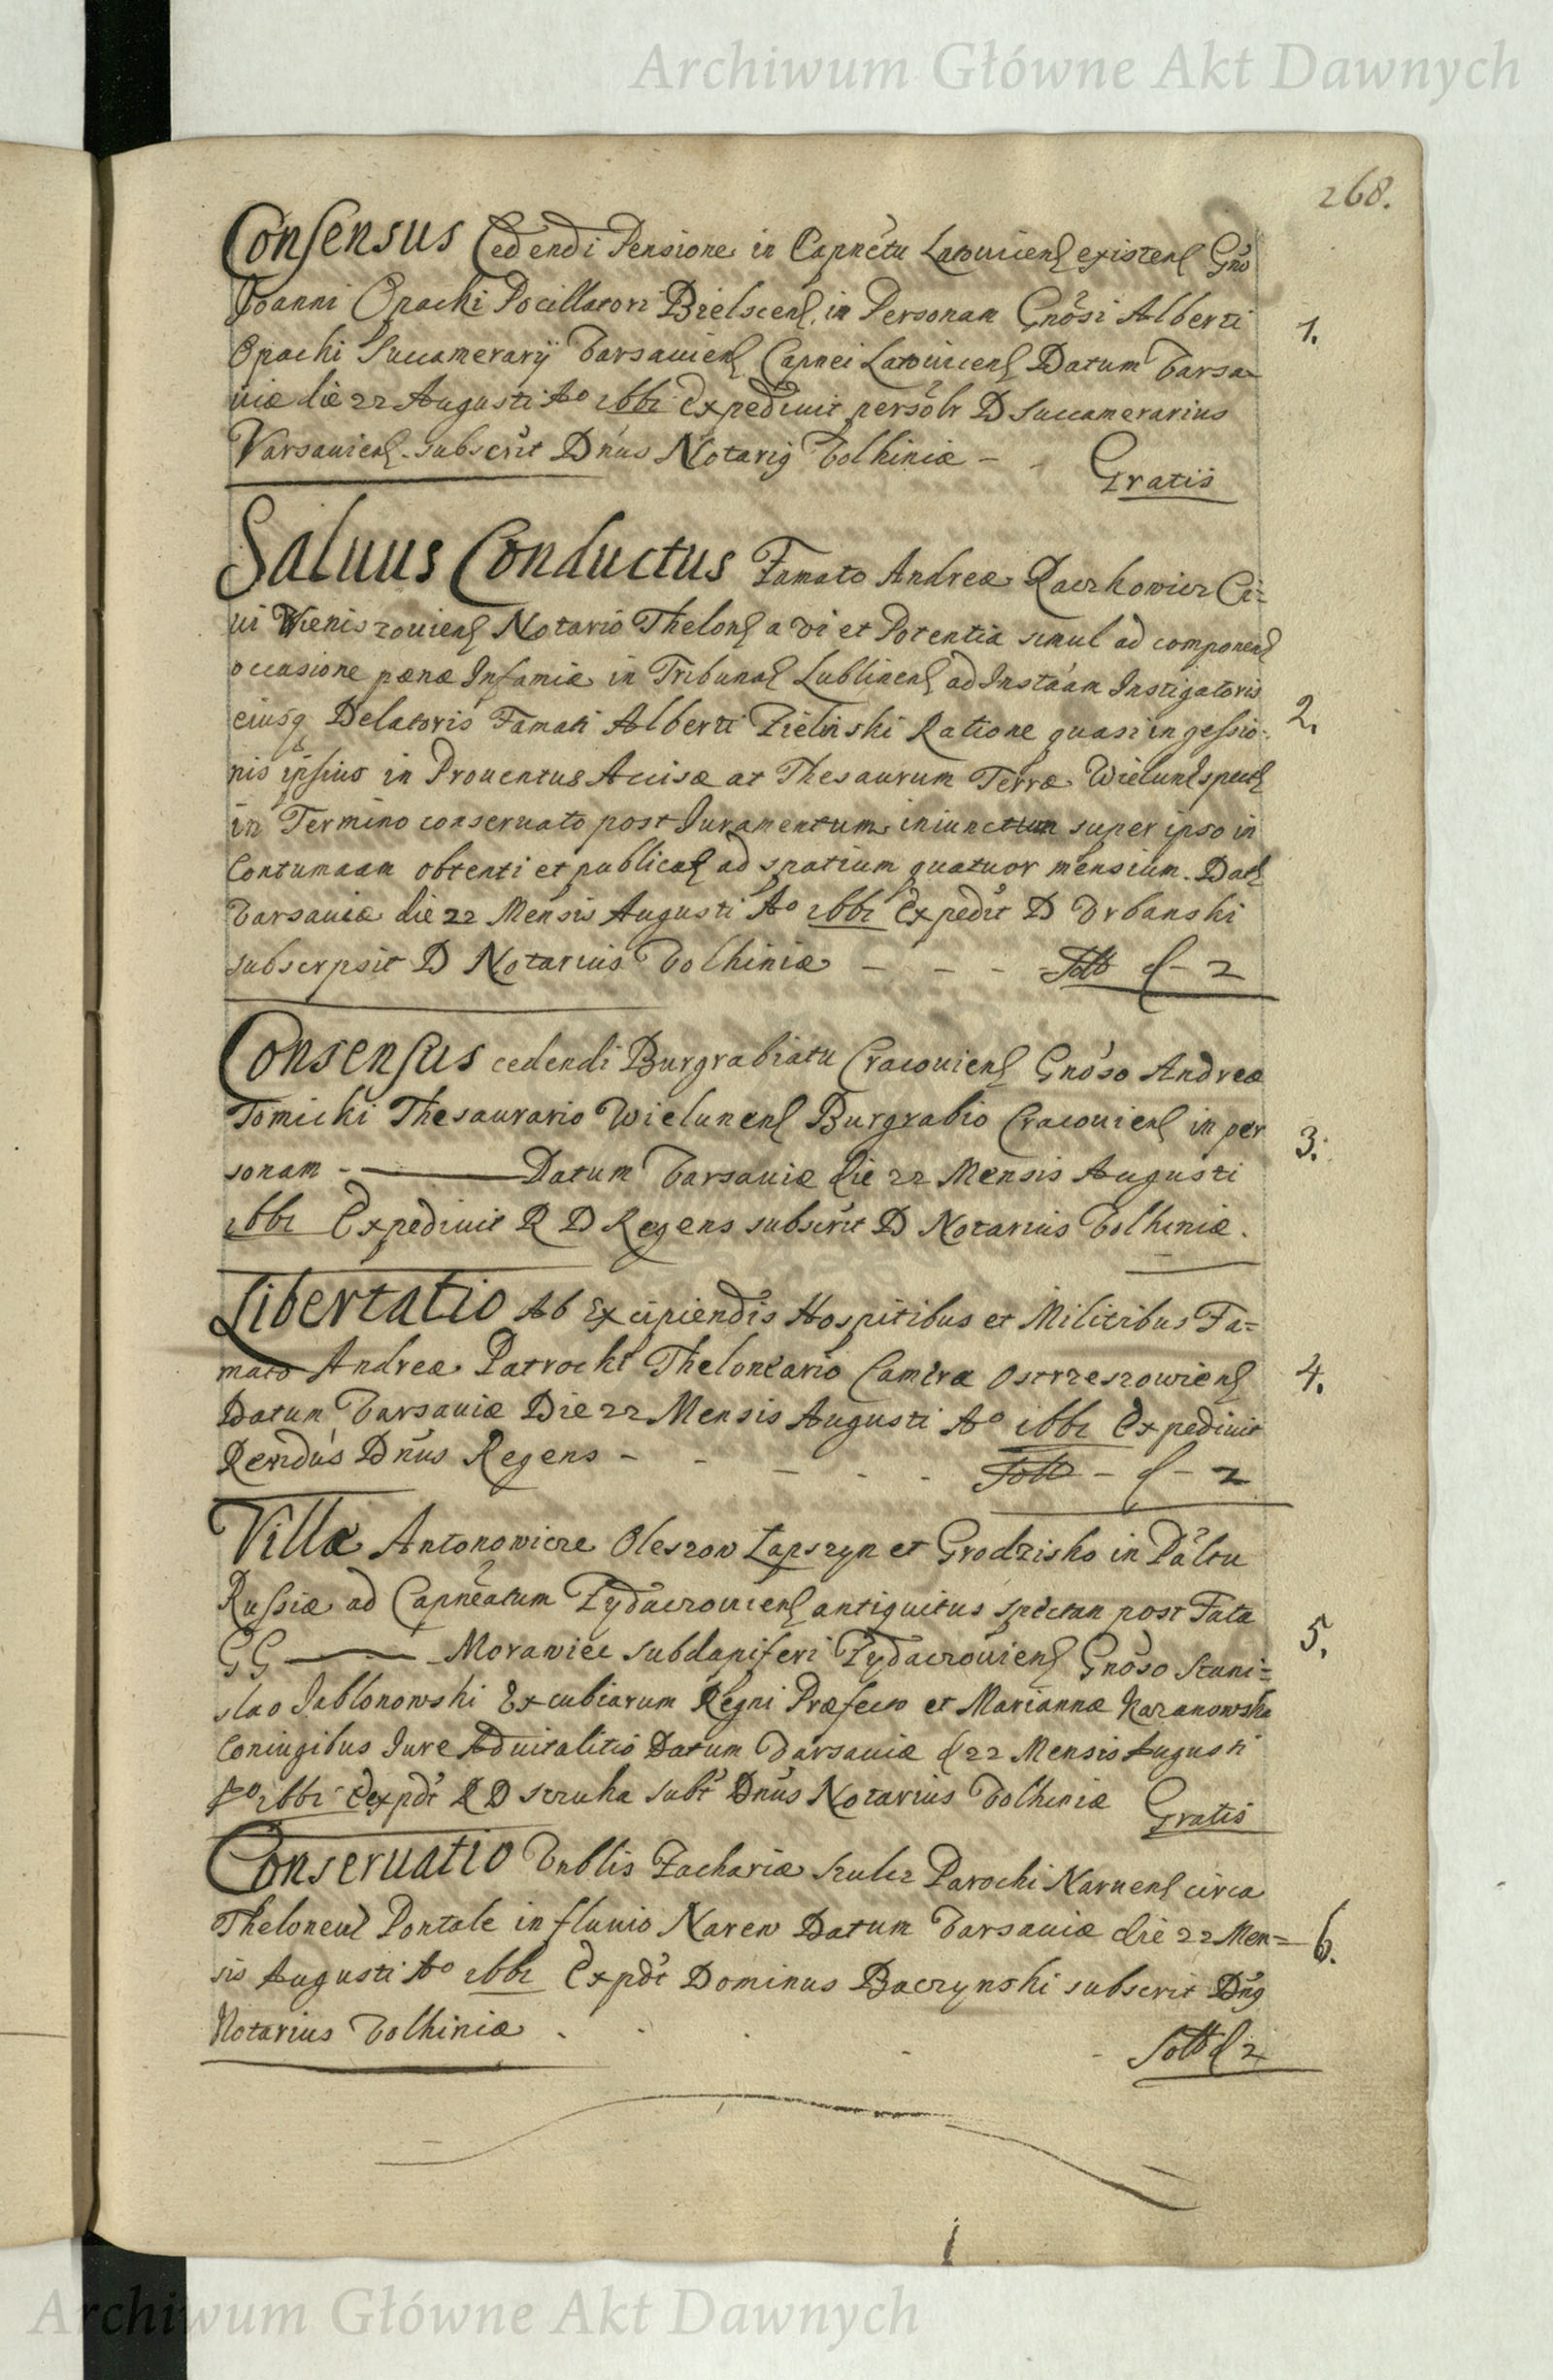 Archiwum Główne Akt Dawnych
268.
Consensus Cedendi Pensione in Capnětu Latouicens existens Gno
Joanni Opacki Pocillatori Bielscens, in Personam Gnosi Alberti
1.
Opacki Succamerarij Varsauiens Capnei Latouicens Datum Varsa-
uiæ die 22 Augusti Ao 1661 Expediuit persolr D Succamerarius
Varsauiens. subscrit Dnus Notarig Volhiniæ -
Gratis
Saluus Conductus Famato Andreæ Raczkowicz Ci=
ui Wieniszouiens Notario Thelons a vi et Potentia simul ad componend
occasione pænæ Infamiæ in Tribunal Lublinens ad Instaam Instigatoris
eiusq Delatoris Famati Alberti Zielinski Ratione quasi ingessio-
2.
nis ipsius in Prouentus Accisæ at Thesaurum Terræ Wieluns spect
in Termino conseruato post Iuramentum iniunctum super ipso in
Contumaam obtenti et publicat ad spatium quatuor mensium. Dat
Varsauiæ die 22 Mensis Augusti Ao 1661 Expedit D Vrbanski
subscrpsit D Notarius Volhiniæ - - - - Sott f - 2
Consensus cedendi Burgrabiatu Cracouiens Gnoso Andreæ
Tomicki Thesaurario Wielunens Burgrabio Cracouiens in per
3.
sonam - Datum Varsauiæ die 22 Mensis Augusti
1661 Expediuit R D Regens subscrit D Notarius Volhiniæ.
Libertatio Ab Excipiendis Hospitibus et Militibus Fa=
mato Andreæ Patrocki Theloneario Cameræ Ostrzeszowiens
4.
Datum Varsauiæ Die 22 Mensis Augusti Ao 1661 Expediuit
Rendus Dnus Regens - - - - - Sott - f - 2
Villæ Antonowice Oleszow Łapszyn et Grodzisko in Paltu
Russiæ ad Capneatum Zydaczouiens antiquitus spectan post Fata
5.
GG - Morawiec subdapiferi Zydaczouiens Gnoso Stani=
slao Jablonowski Excubiarum Regni Præfecto et Mariannæ Kazanowska
Coniugibus Iure Aduitalitio Datum Varsauiæ d 22 Mensis Augusti
Ao 1661 Expdt R D Struha subt Dnus Notarius Volhiniæ
Gratis
Conseruatio Vnblis Zachariæ Szulcz Parochi Naruens circa
Theloneul Pontale in fluuio Narew Datum Varsauiæ die 22 Men=
6.
sis Augusti Ao 1661 Expdt Dominus Baczynski subscrit Dng
Notarius Volhiniæ . . . - -
Sott f 2
Archiwum Główne Akt Dawnych